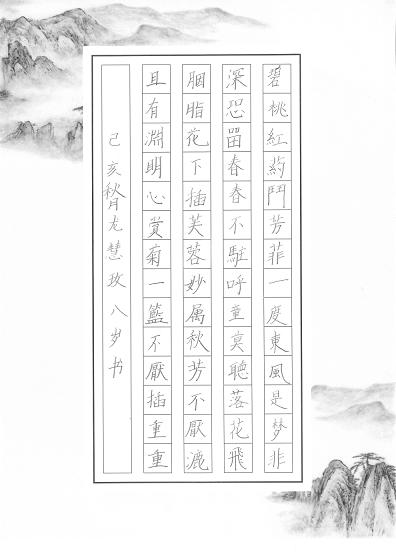 碧桃紅药鬥芳菲一度東風是梦非
深恐留春春不駐呼童莫聽落花飛
胭脂花下插芙蓉妙属秋芳不厭漉
且有淵明心赏菊一籃不厭插重重
己亥秋月龙慧玫八岁书